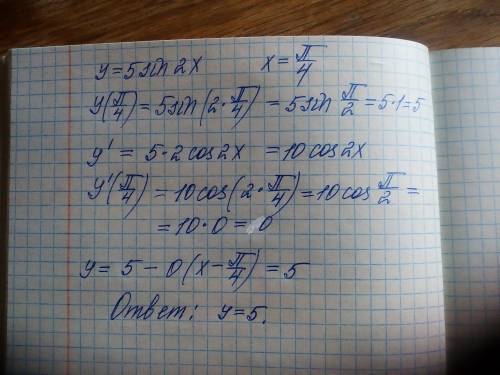 y = 5 sin 2x    x = π/4
y(π/4) = 5 sin(2·π/4) = 5 sin π/2 = 5·1 = 5
y' = 5·2 cos 2x = 10 cos 2x
y'(π/4) = 10 cos(2·π/4) = 10 cos π/2 =
= 10·0 = 0
y = 5 − 0(x − π/4) = 5
Ответ: y = 5.